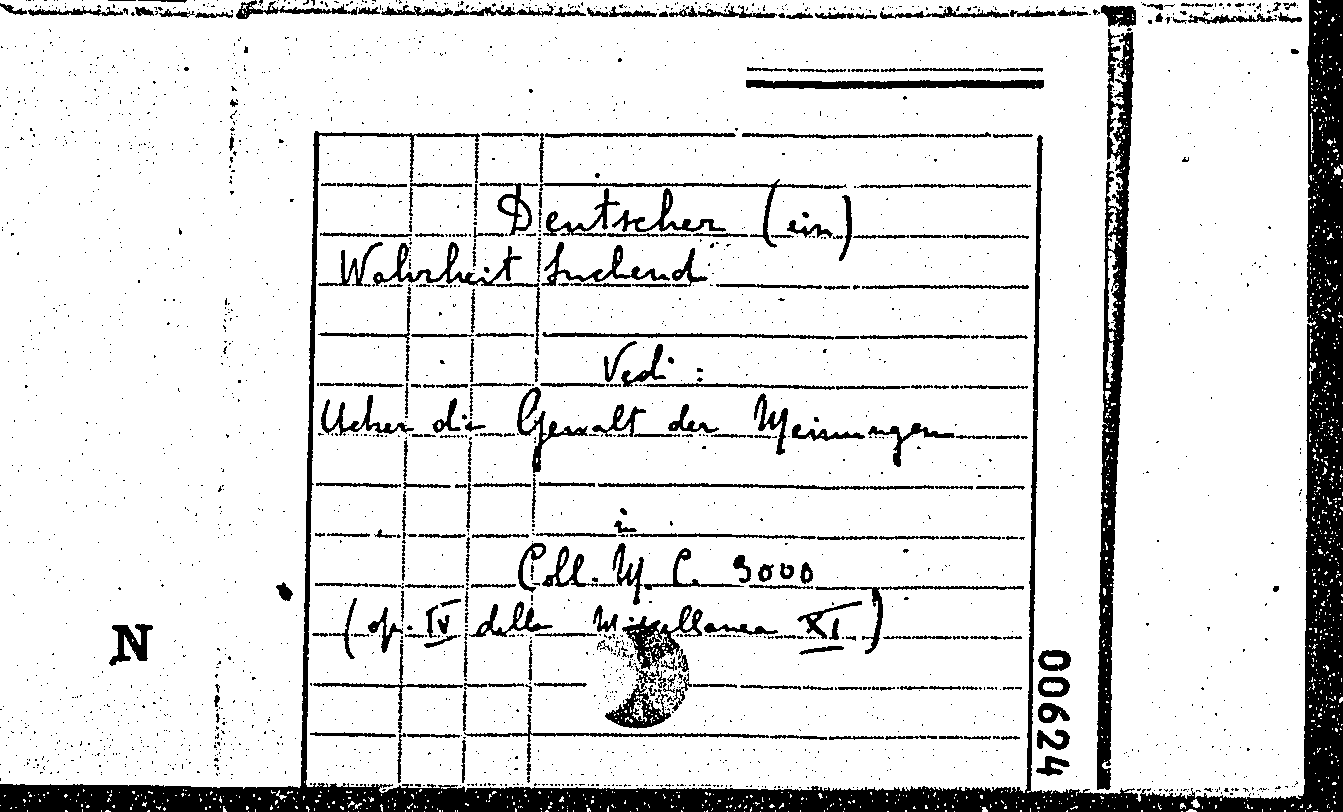 Deutscher (ein)
Wahrheit suchend
Vedi:
Ueber die Gewalt der Meinungen
in
Coll. M. C. 3000
(op. IV della Miscellanea XI)
N
00624